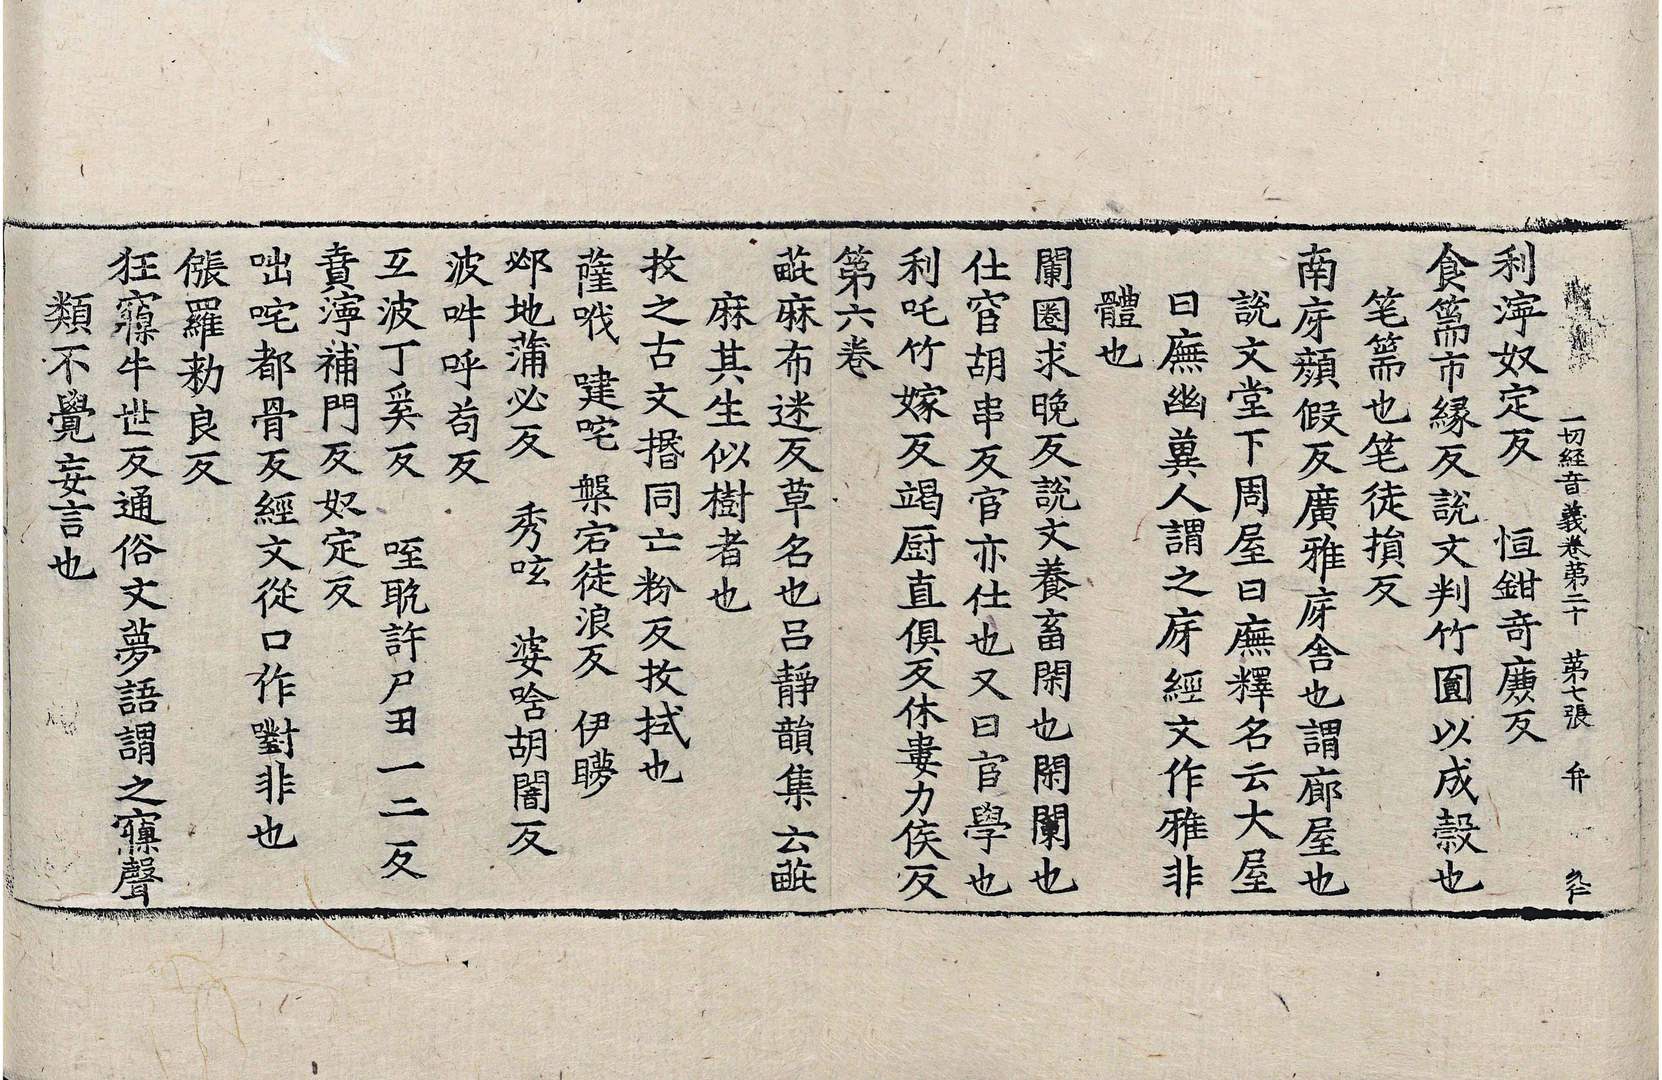 一切経音義卷第二十 第七張 弁
利濘奴定反 恒鉗奇廉反
食篅市縁反說文判竹圎以成穀也
笔篅也笔徒損反
南庌顔假反廣雅庌舍也謂廊屋也
說文堂下周屋曰廡釋名云大屋
曰廡幽冀人謂之庌經文作雅非
體也
闌圈求晚反說文養畜閑也閑闌也
仕宦胡串反官亦仕也又曰官學也
利吒竹嫁反竭厨直俱反休婁力侯反
第六卷
蓖麻布迷反草名也吕靜韻集云蓖
麻其生似樹者也
抆之古文捪同亡粉反抆拭也
薩哦 㖶咤 槃宕徒浪反 伊㬹
邲地蒲必反 秀呟 婆唅胡闇反
波吽呼苟反
互波丁奚反 咥䎳許尸丑一二反
賁濘補門反奴定反
咄咤都骨反經文從口作嚉非也
倀羅勑良反
狂寱牛世反通俗文夢語謂之寱聲
類不覺妄言也